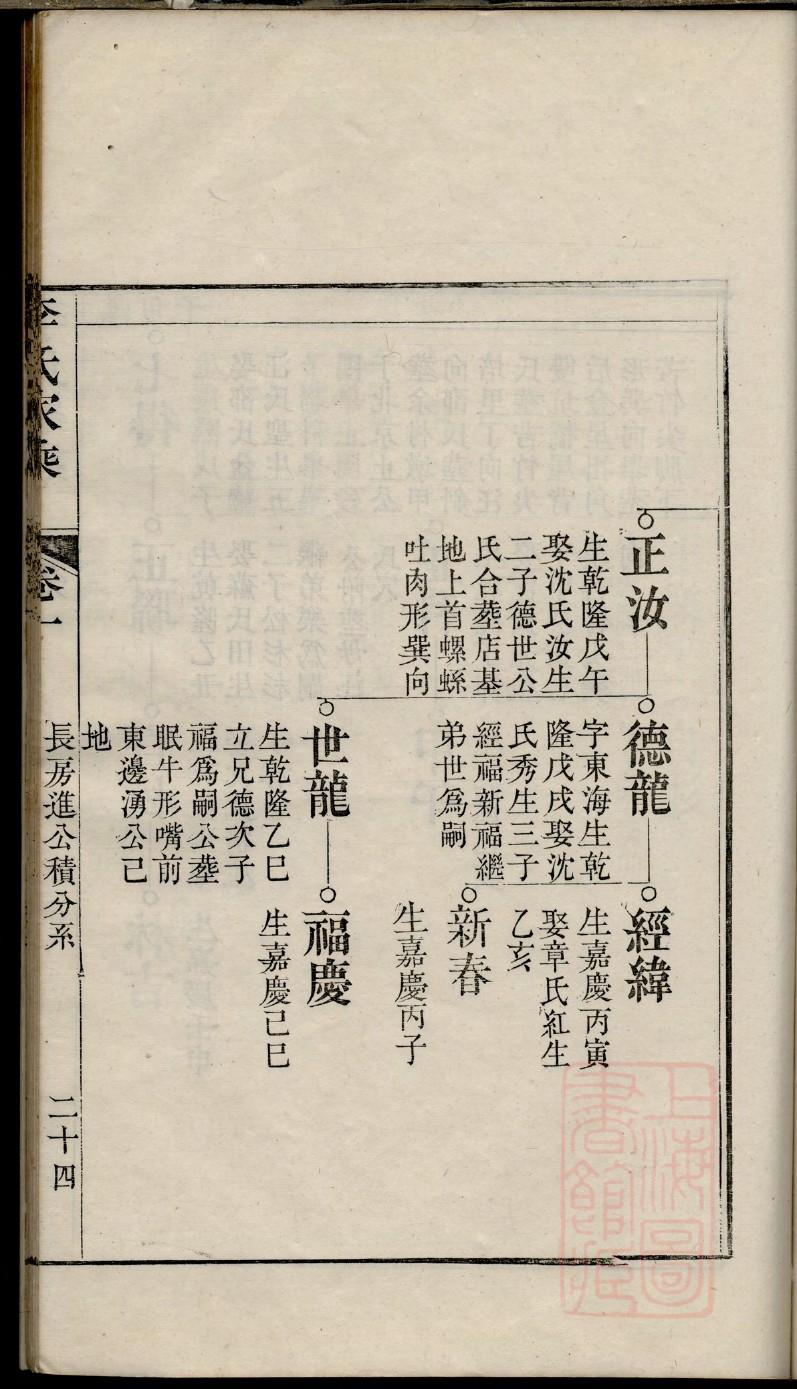 正汝
生乾隆戊午
娶沈氏汝生
二子德世公
氏合塟店基
地上首螺螄
吐肉形巽向
德龍
字東海生乾
隆戊戌娶沈
氏秀生三子
經福新福繼
弟世爲嗣
經緯
生嘉慶丙寅
娶章氏紅生
乙亥
新春
生嘉慶丙子
世龍
生乾隆乙巳
立兄德次子
福爲嗣公塟
眠牛形嘴前
東邊湧公己
地
福慶
生嘉慶己巳
李氏家乘
卷一
長房進公積分系
二十四
上海圖
書館藏